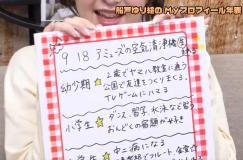 船戸ゆり絵のMyプロフィール年表
9/18 アミューズの空気清浄機
幼少期 ☆ 2歳でヤマハ教室に通う
公園で友達をつくりまくる。
TVゲームにハマる
小学生 ☆ ダンス、習字、水泳など習う
おんどくの宿題が好き
☆ 中二病になる
フルート